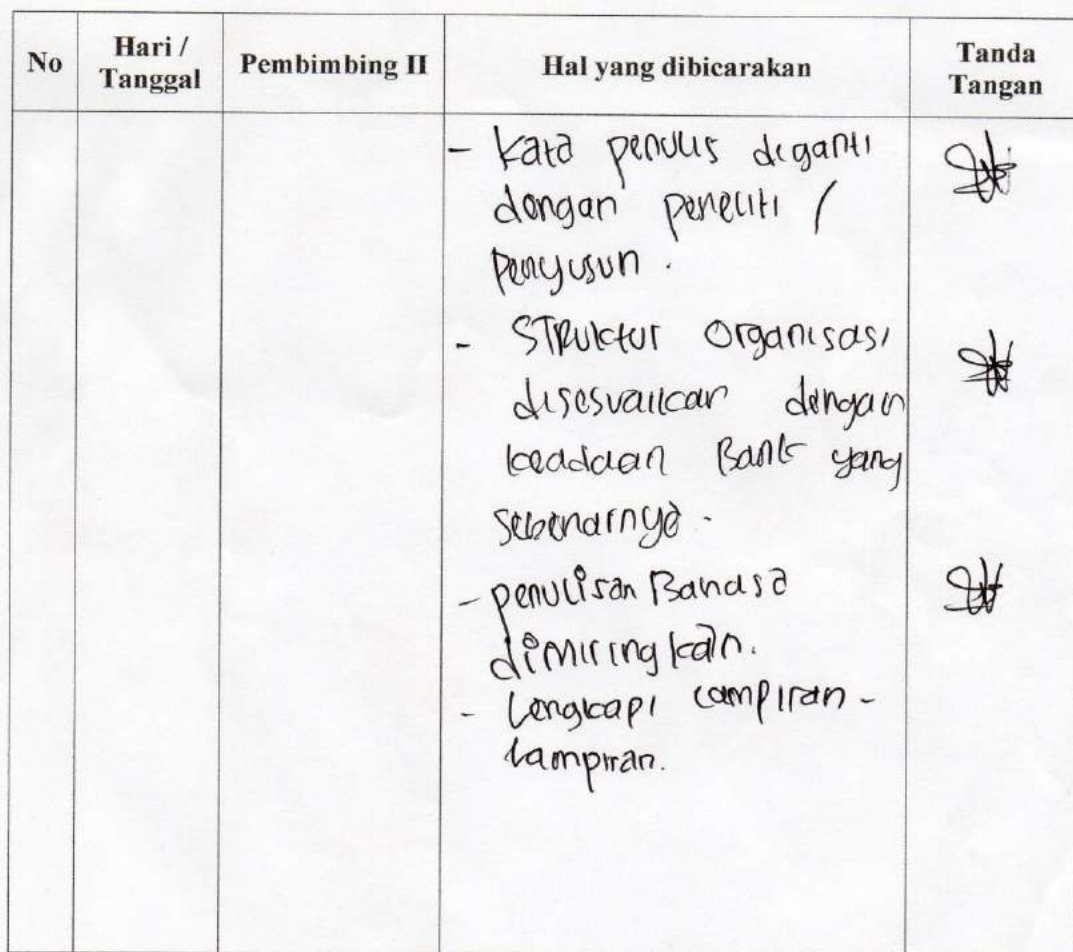 No
Hari /
Tanggal
Pembimbing II
Hal yang dibicarakan
Tanda
Tangan
- Kata penulis diganti
dengan peneliti /
Penyusun.
- Struktur Organisasi
disesuaikan dengan
keadaan Bank yang
sebenarnya.
- penulisan Bahasa
dimiringkan.
- Lengkapi lampiran-
lampiran.